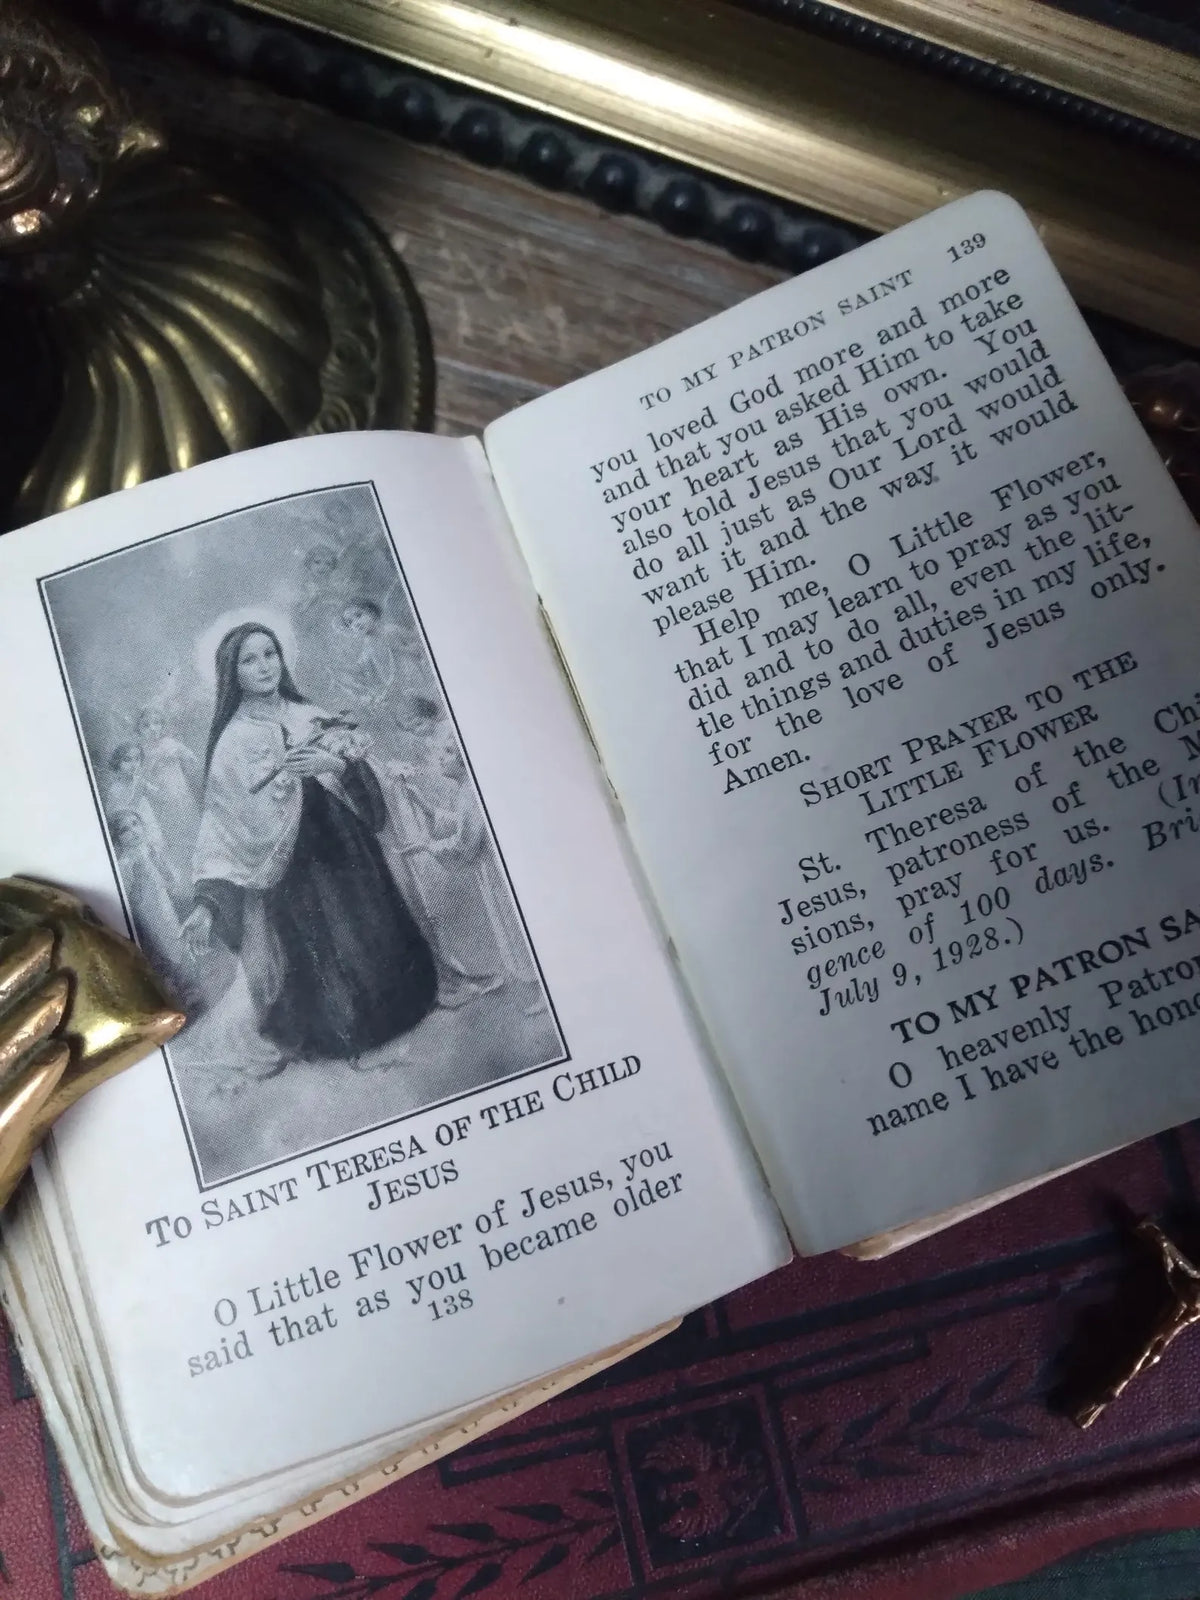 To Saint Teresa of the Child
Jesus
O Little Flower of Jesus, you
said that as you became older
138
TO MY PATRON SAINT 139
you loved God more and more
and that you asked Him to take
your heart as His own. You
also told Jesus that you would
do all just as Our Lord would
want it and the way it would
please Him.
Help me, O Little Flower,
that I may learn to pray as you
did and to do all, even the lit-
tle things and duties in my life,
for the love of Jesus only.
Amen.
Short Prayer to the
Little Flower
St. Theresa of the
Jesus, patroness of the
sions, pray for us.
gence of 100 days.
July 9, 1928.)
TO MY PATRON
O heavenly
name I have the